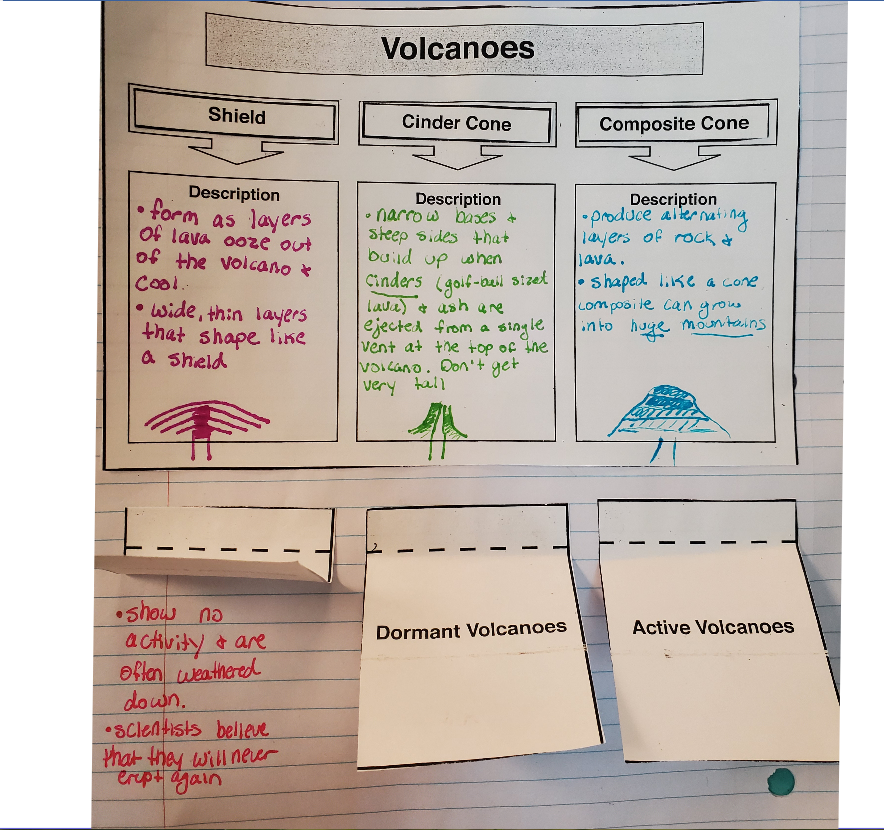 Volcanoes
Shield
Cinder Cone
Composite Cone
Description
• form as layers
of lava ooze out
of the volcano &
cool.
• wide, thin layers
that shape like
a shield
Description
• narrow bases &
steep sides that
build up when
cinders (golf-ball sized
lava) & ash are
ejected from a single
vent at the top of the
volcano. Don't get
very tall
Description
• produce alternating
layers of rock &
lava.
• shaped like a cone
composite can grow
into huge mountains
• show no
activity & are
often weathered
down.
• scientists believe
that they will never
erupt again
Dormant Volcanoes
Active Volcanoes